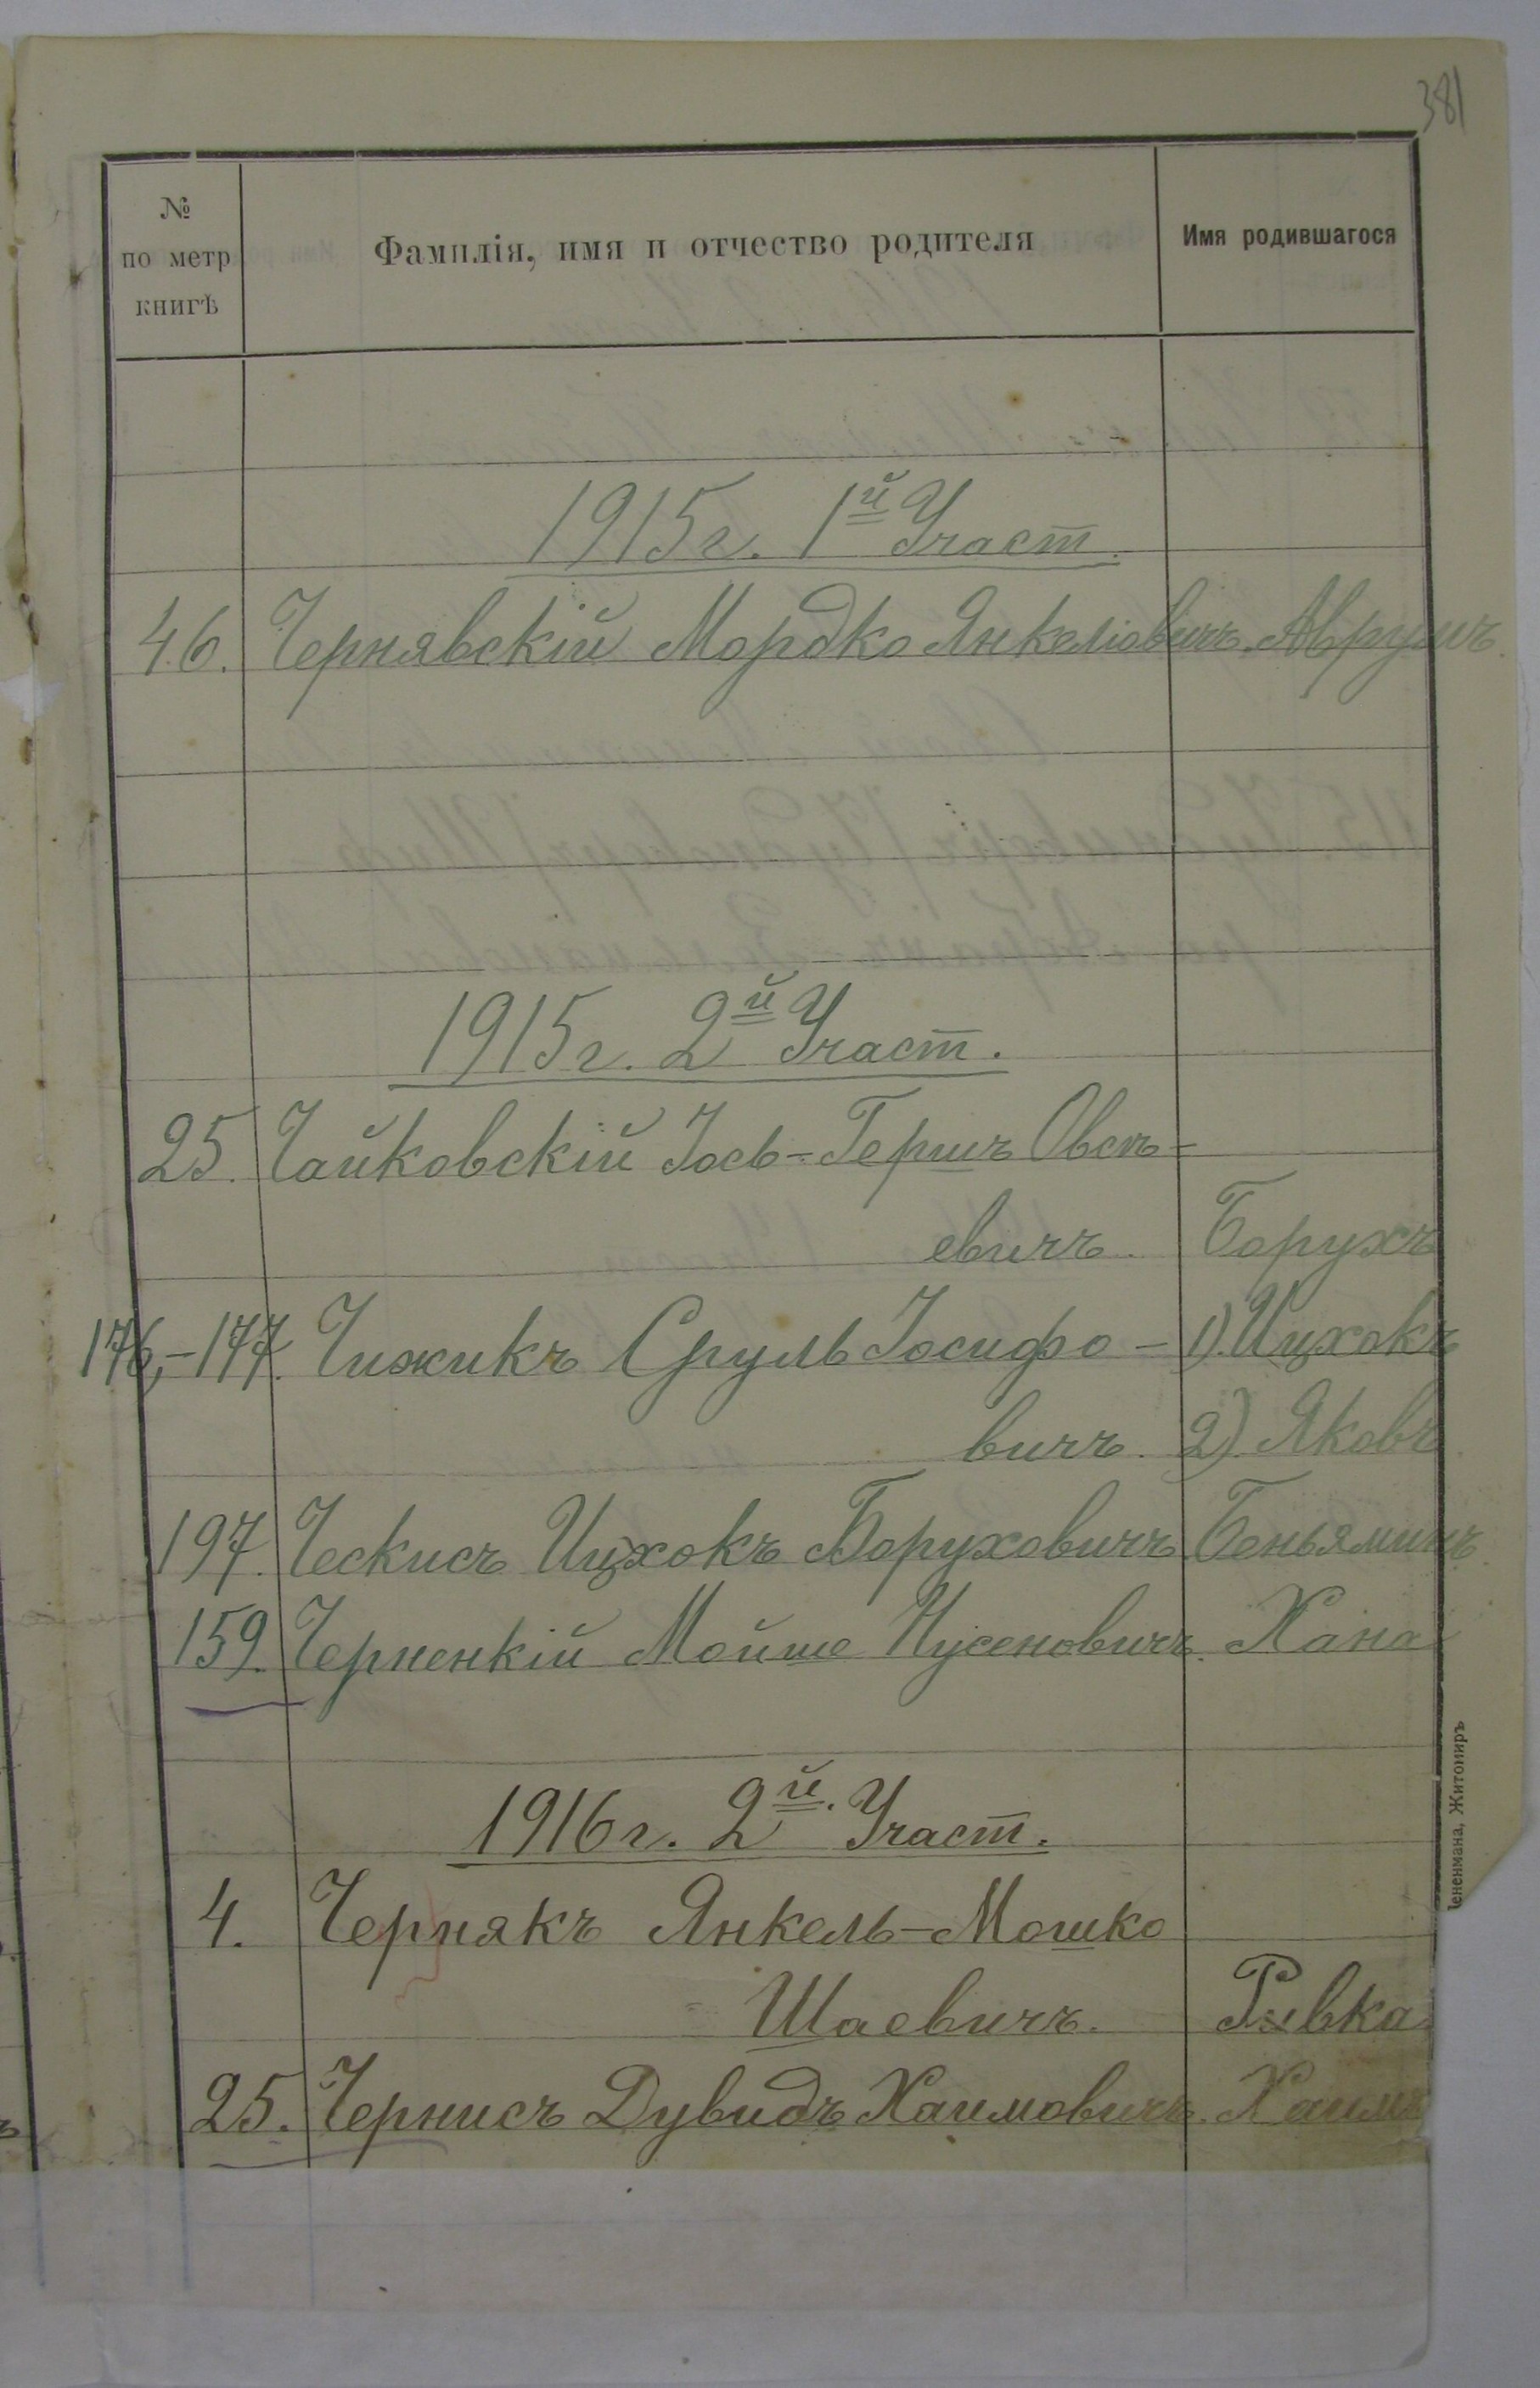 381
№
по метр
книгѣ
Фамилія, имя и отчество родителя
Имя родившагося
1915г. 1й Участ.
46. Чернявскій Мордко Янкеліовичъ. Аврумъ.
1915г. 2й Участ.
25. Чайковскій Іось-Гершъ Овсѣ-
евичъ. Борухъ
176,-177. Чижикъ Сруль Іосифо- 1). Ицхокъ
вичъ. 2). Яковъ.
197. Ческисъ Ицхокъ Боруховичъ Беньяминъ.
159. Черненкій Мойше Нусеновичъ. Хана
1916г. 2й. Участ.
4. Чернякъ Янкель-Мошко
Шаевичъ. Ривка
25. Чернисъ Дувидъ Хаимовичъ. Хаимъ
Житомиръ